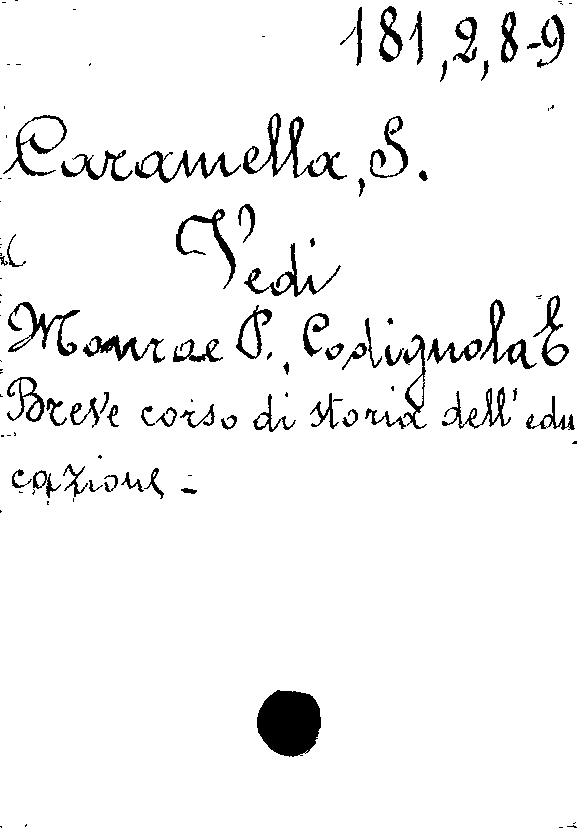 181,2,8-9
Caramella, S.
Vedi
Monroe P., Codignola E
Breve corso di storia dell'edu
cazione -